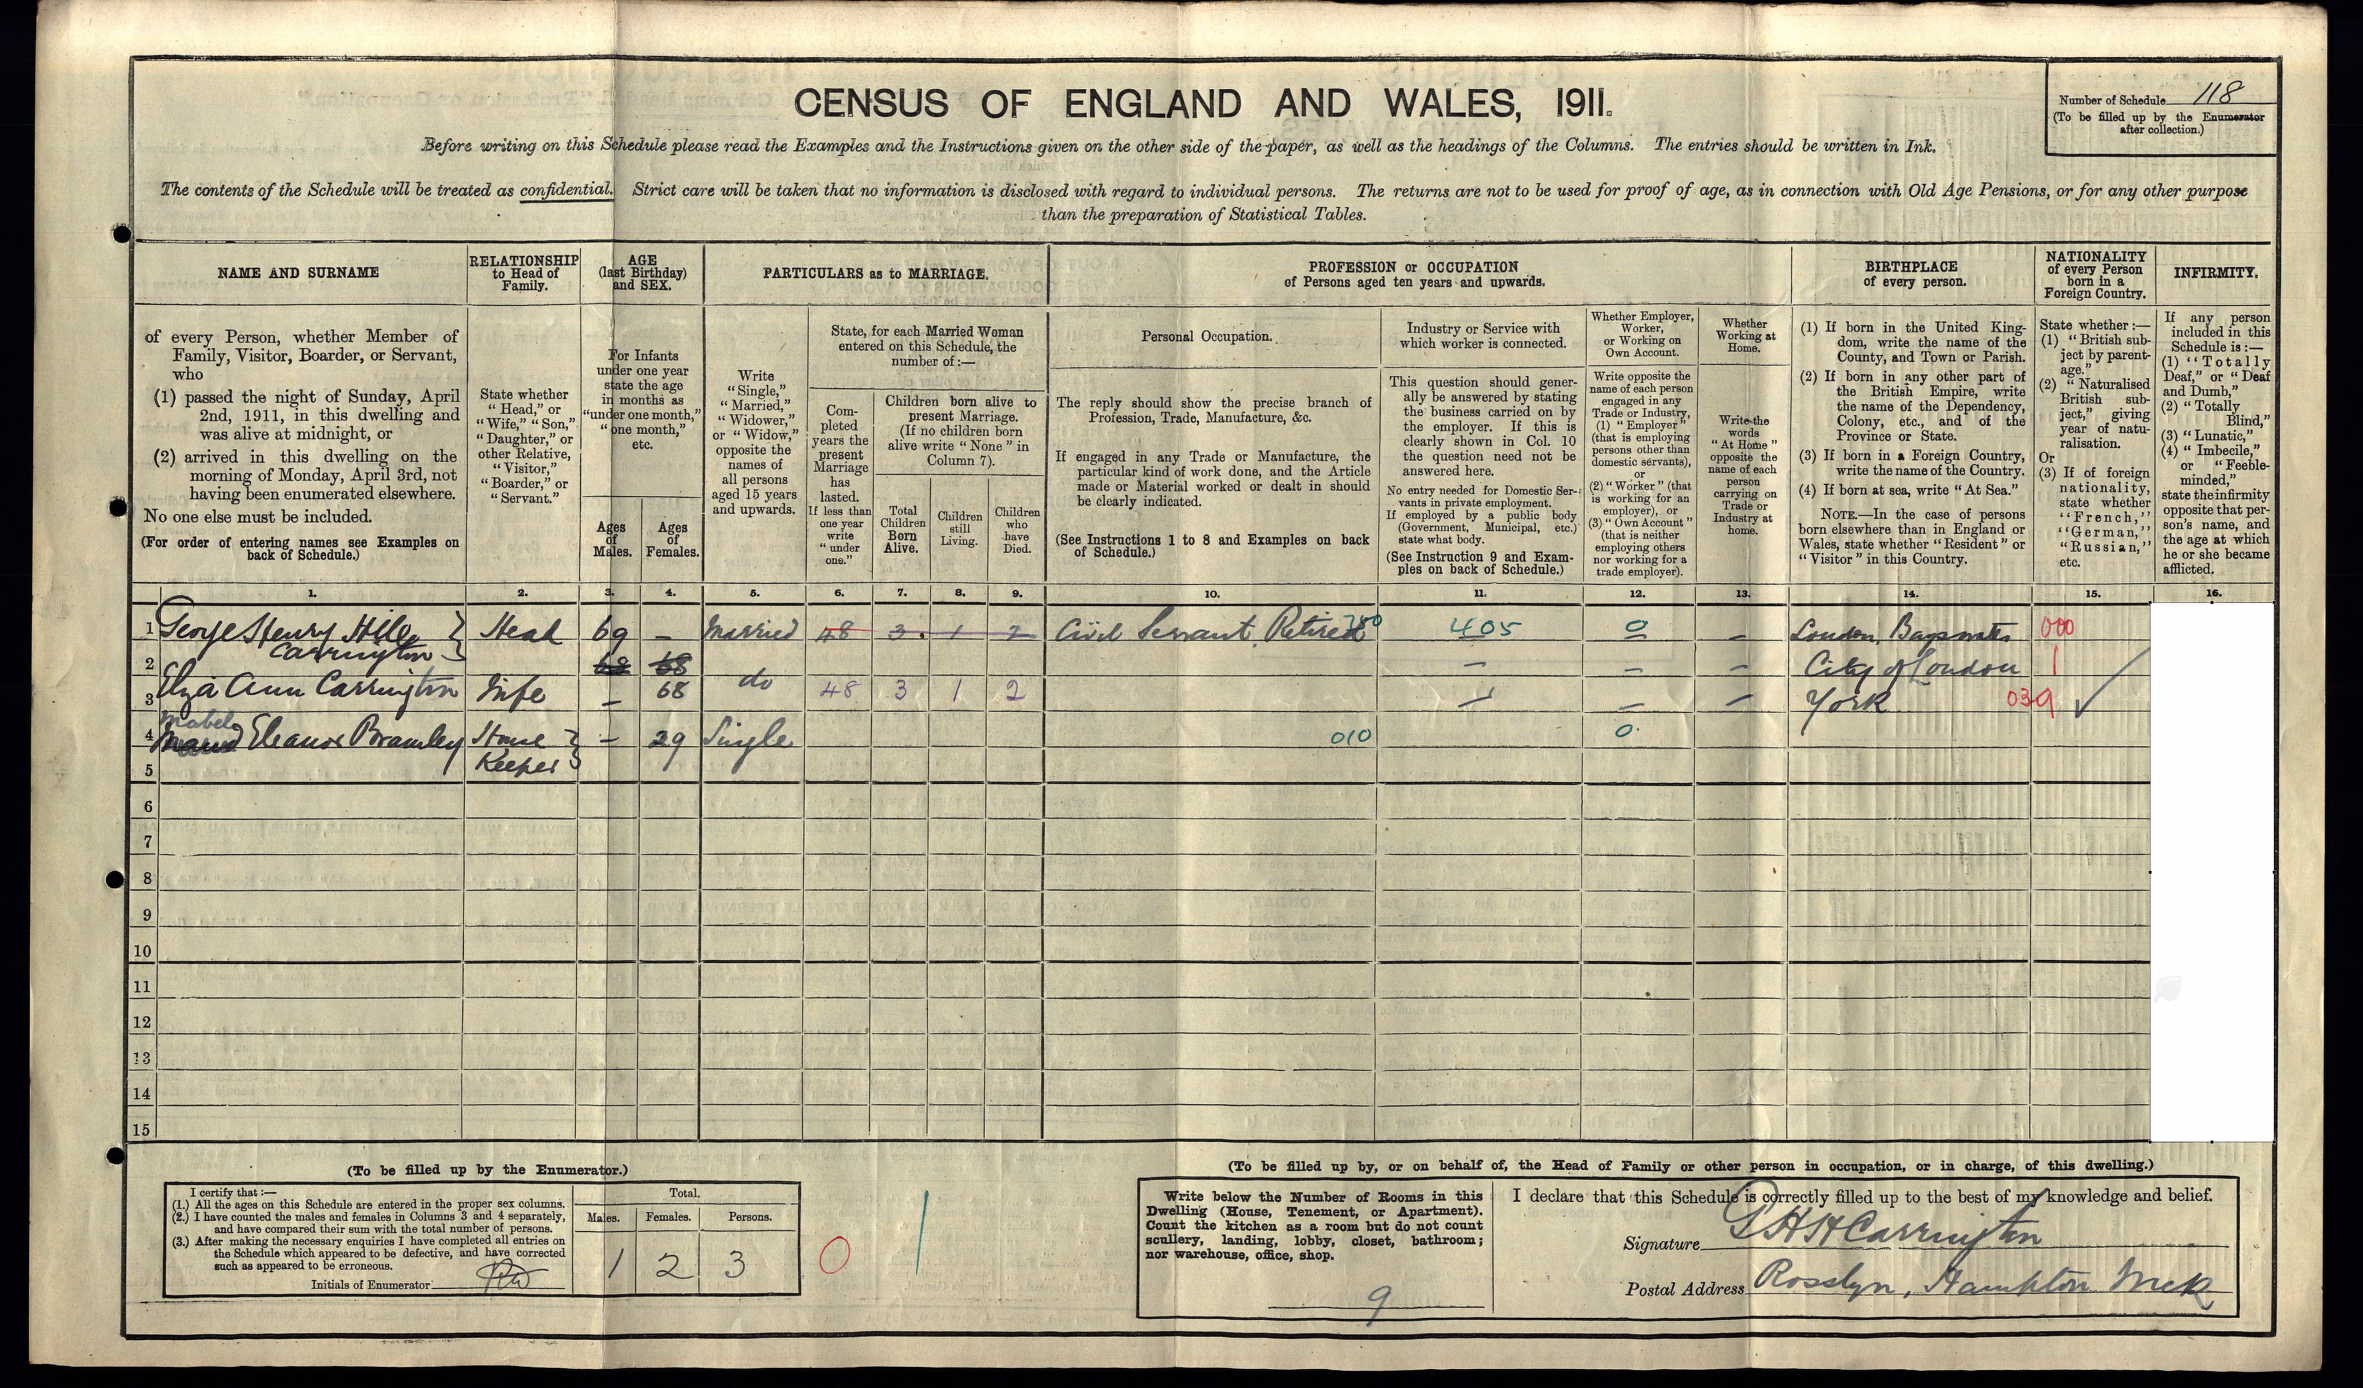 CENSUS OF ENGLAND AND WALES, 1911.
Number of Schedule 118
(To be filled up by the Enumerator
after collection.)
Before writing on this Schedule please read the Examples and the Instructions given on the other side of the paper, as well as the headings of the Columns. The entries should be written in Ink.
The contents of the Schedule will be treated as confidential. Strict care will be taken that no information is disclosed with regard to individual persons. The returns are not to be used for proof of age, as in connection with Old Age Pensions, or for any other purpose
than the preparation of Statistical Tables.
NAME AND SURNAME
of every Person, whether Member of
Family, Visitor, Boarder, or Servant,
who
(1) passed the night of Sunday, April
2nd, 1911, in this dwelling and
was alive at midnight, or
(2) arrived in this dwelling on the
morning of Monday, April 3rd, not
having been enumerated elsewhere.
No one else must be included.
(For order of entering names see Examples on
back of Schedule.)
RELATIONSHIP
to Head of
Family.
State whether
"Head," or
"Wife," "Son,"
"Daughter," or
other Relative,
"Visitor,"
"Boarder," or
"Servant."
AGE
(last Birthday)
and SEX.
For Infants
under one year
state the age
in months as
"under one month,"
"one month,"
etc.
Ages
of
Males.
Ages
of
Females.
PARTICULARS as to MARRIAGE.
Write
"Single,"
"Married,"
"Widower,"
or "Widow,"
opposite the
names of
all persons
aged 15 years
and upwards.
State, for each Married Woman
entered on this Schedule, the
number of:—
Com-
pleted
years the
present
Marriage
has
lasted.
If less than
one year
write
"under
one."
Children born alive to
present Marriage.
(If no children born
alive write "None" in
Column 7).
Total
Children
Born
Alive.
Children
still
Living.
Children
who
have
Died.
PROFESSION or OCCUPATION
of Persons aged ten years and upwards.
Personal Occupation.
The reply should show the precise branch of
Profession, Trade, Manufacture, &c.
If engaged in any Trade or Manufacture, the
particular kind of work done, and the Article
made or Material worked or dealt in should
be clearly indicated.
(See Instructions 1 to 8 and Examples on back
of Schedule.)
Industry or Service with
which worker is connected.
This question should gener-
ally be answered by stating
the business carried on by
the employer. If this is
clearly shown in Col. 10
the question need not be
answered here.
No entry needed for Domestic Ser-
vants in private employment.
If employed by a public body
(Government, Municipal, etc.)
state what body.
(See Instruction 9 and Exam-
ples on back of Schedule.)
Whether Employer,
Worker,
or Working on
Own Account.
Write opposite the
name of each person
engaged in any
Trade or Industry,
(1) "Employer"
(that is employing
persons other than
domestic servants),
or
(2) "Worker" (that
is working for an
employer), or
(3) "Own Account"
(that is neither
employing others
nor working for a
trade employer).
Whether
Working at
Home.
Write the
words
"At Home"
opposite the
name of each
person
carrying on
Trade or
Industry at
home.
BIRTHPLACE
of every person.
(1) If born in the United King-
dom, write the name of the
County, and Town or Parish.
(2) If born in any other part of
the British Empire, write
the name of the Dependency,
Colony, etc., and of the
Province or State.
(3) If born in a Foreign Country,
write the name of the Country.
(4) If born at sea, write "At Sea."
NOTE.—In the case of persons
born elsewhere than in England or
Wales, state whether "Resident" or
"Visitor" in this Country.
NATIONALITY
of every Person
born in a
Foreign Country.
State whether:—
(1) "British sub-
ject by parent-
age."
(2) "Naturalised
British sub-
ject," giving
year of natu-
ralisation.
Or
(3) If of foreign
nationality,
state whether
"French,"
"German,"
"Russian,"
etc.
INFIRMITY.
If any person
included in this
Schedule is:—
(1) "Totally
Deaf," or "Deaf
and Dumb,"
(2) "Totally
Blind,"
(3) "Lunatic,"
(4) "Imbecile,"
or "Feeble-
minded,"
state the infirmity
opposite that per-
son's name, and
the age at which
he or she became
afflicted.
1. 2. 3. 4. 5. 6. 7. 8. 9. 10. 11. 12. 13. 14. 15. 16.
1 George Henry Hile Head 69 — Married 48 3 1 2 Civil Servant Retired 405 0 — London, Bayswater 000
2 Carrington 68 68 — — — City of London 1
3 Eliza Ann Carrington Wife — 68 do 48 3 1 2 — — — York 039
Mabel
4 Maud Eleanor Bramley House — 29 Single 010 0
5 Keeper
6
7
8
9
10
11
12
13
14
15
(To be filled up by the Enumerator.)
I certify that:—
(1.) All the ages on this Schedule are entered in the proper sex columns.
(2.) I have counted the males and females in Columns 3 and 4 separately,
and have compared their sum with the total number of persons.
(3.) After making the necessary enquiries I have completed all entries on
the Schedule which appeared to be defective, and have corrected
such as appeared to be erroneous.
Initials of Enumerator
Total.
Males. Females. Persons.
1 2 3
0 1
(To be filled up by, or on behalf of, the Head of Family or other person in occupation, or in charge, of this dwelling.)
Write below the Number of Rooms in this
Dwelling (House, Tenement, or Apartment).
Count the kitchen as a room but do not count
scullery, landing, lobby, closet, bathroom;
nor warehouse, office, shop.
9
I declare that this Schedule is correctly filled up to the best of my knowledge and belief.
Signature G H H Carrington
Postal Address Rosslyn, Hampton Wick